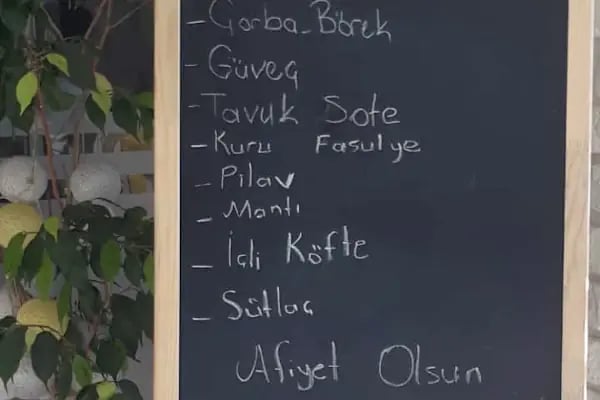 - Çorba-Börek
- Güveç
- Tavuk Sote
- Kuru Fasulye
- Pilav
- Mantı
- İçli Köfte
- Sütlaç
Afiyet Olsun